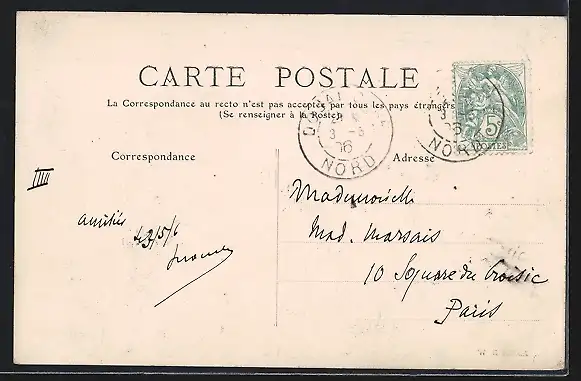 CARTE POSTALE
La Correspondance au recto n'est pas acceptée par tous les pays étrangers
(Se renseigner à la Poste)
3 -5
06
NORD
NORD
5
POSTES
Correspondance
Adresse
IIII
amitiés
Mademoiselle
Mad. Marsais
10 Square du Croisic
Paris